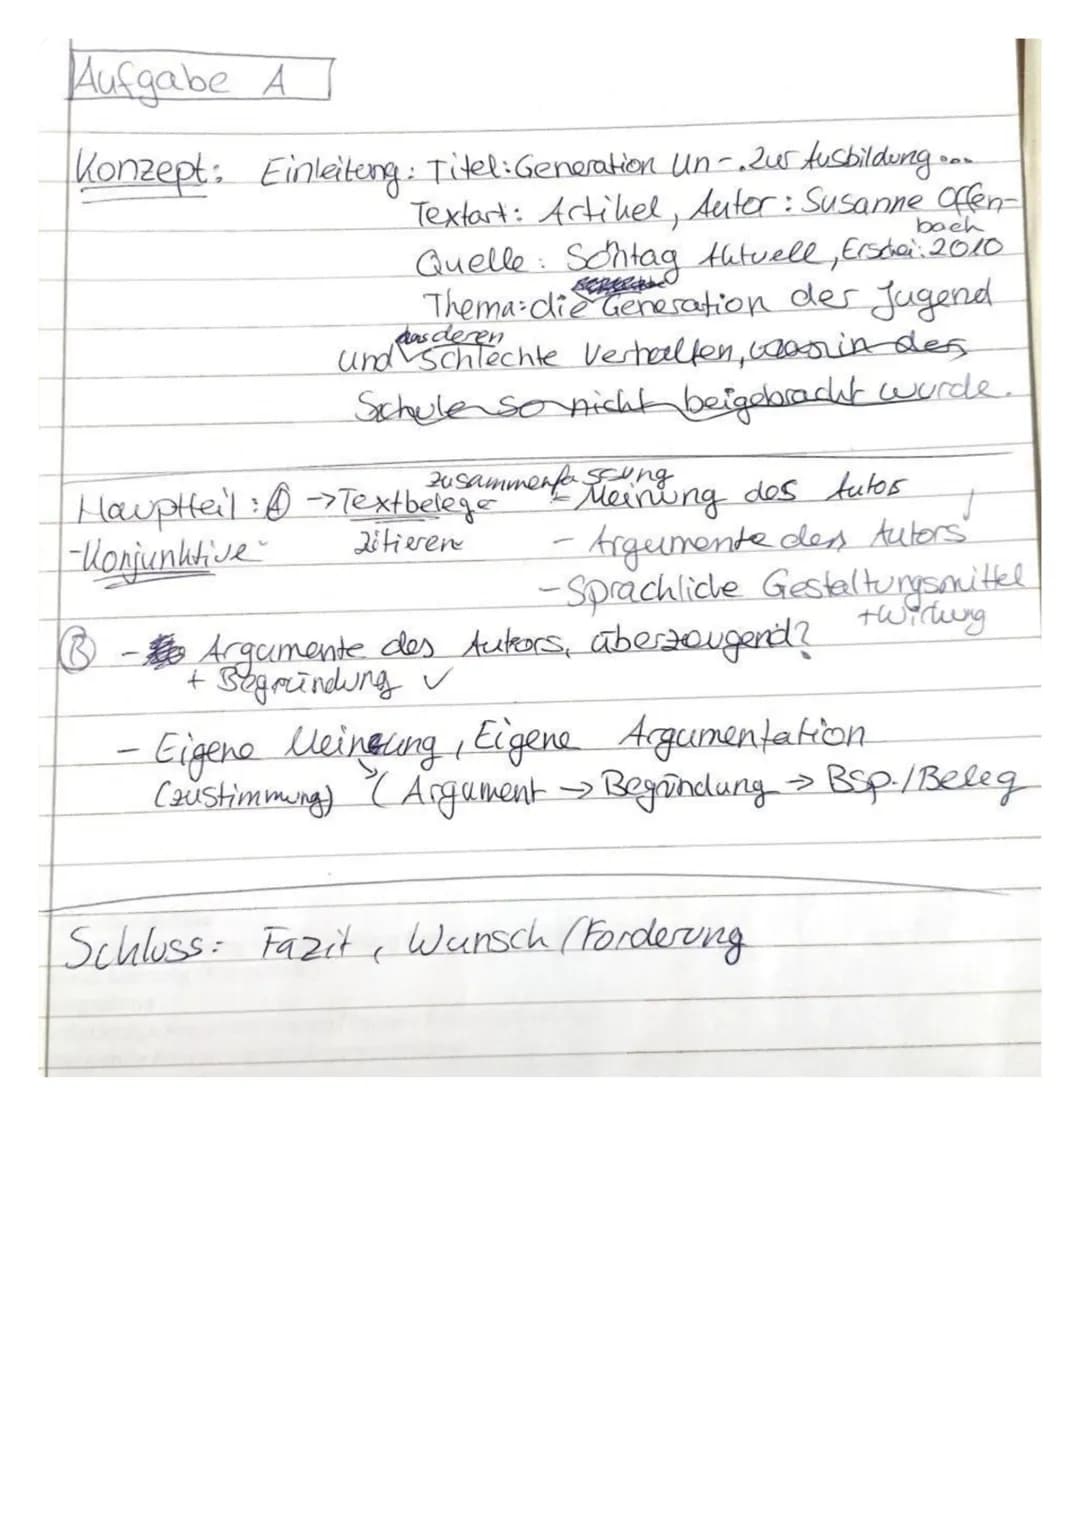 Aufgabe A
Konzept: Einleitung: Titel: Generation Un-. Zur Ausbildung ...
Textart: Artikel, Autor: Susanne Offen-
bach
Quelle: Sontag Aktuell, Erschei: 2010
Thema: die Generation der Jugend
das deren
und schlechte Verhalten, was in der
Schule so nicht beigebracht wurde.
zusammenfassung
Hauptteil: A → Textbelege - Meinung des Autos
-Konjunktive- zitieren - Argumente des Autors
- Sprachliche Gestaltungsmittel
+ Wirkung
B - Argumente des Autors, überzeugend?
+ Begründung ✓
- Eigene Meinung, Eigene Argumentation
(zustimmung) (Argument → Begründung → Bsp./Beleg
Schluss: Fazit, Wunsch/Forderung